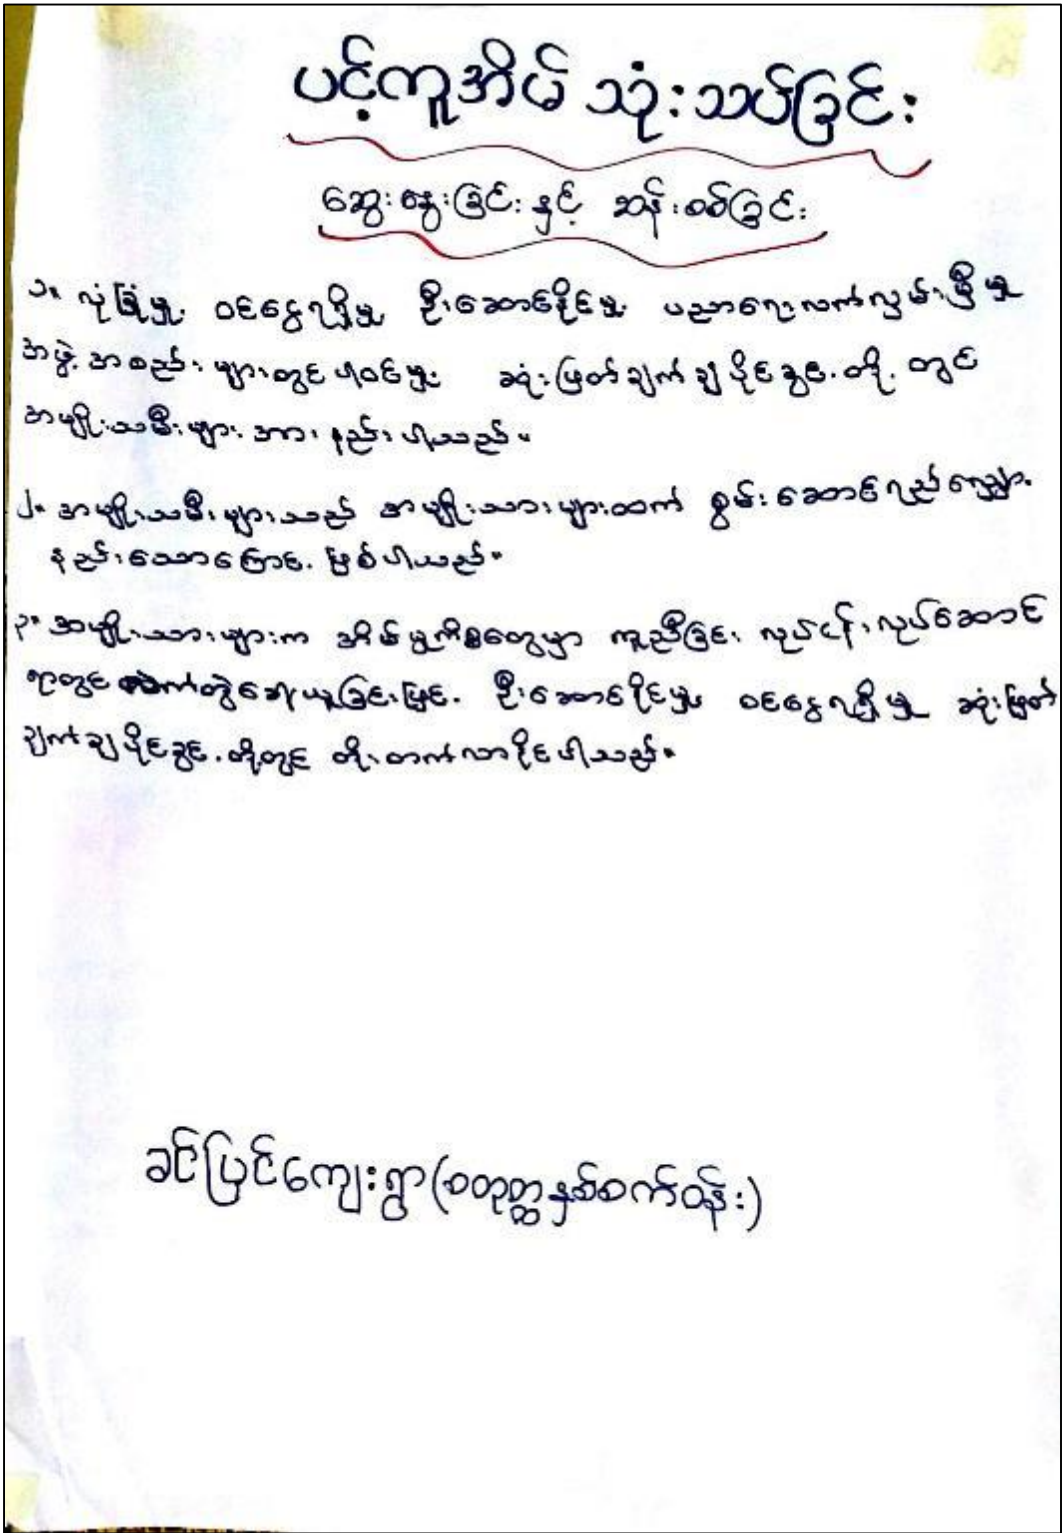 ပင့်ကူအိမ် သုံးသပ်ခြင်း
ဆွေးနွေးခြင်း နှင့် ဆန်းစစ်ခြင်း
၁။ လုံခြုံမှု၊ ဝင်ငွေရရှိမှု၊ ဦးဆောင်နိုင်မှု၊ ပညာရေးလက်လှမ်းမှီမှု
အဖွဲ့အစည်းများတွင် ပါဝင်မှု၊ ဆုံးဖြတ်ချက်ချပိုင်ခွင့်တို့တွင်
အမျိုးသမီးများ အား နည်းပါသည်။
၂။ အမျိုးသမီးများသည် အမျိုးသားများထက် စွမ်းဆောင်ရည်
နည်းသောကြောင့် ဖြစ်ပါသည်။
၃။ အမျိုးသားများက အိမ်မှုကိစ္စတွေမှာ ကူညီခြင်း လုပ်ငန်းလုပ်ဆောင်
ရာတွင် လက်တွဲခေါ်ယူခြင်းဖြင့် ဦးဆောင်နိုင်မှု၊ ဝင်ငွေရရှိမှု ဆုံးဖြတ်
ချက်ချပိုင်ခွင့်တို့တွင် တိုးတက်လာနိုင်ပါသည်။
ခင်ပြင်ကျေးရွာ(စတုတ္ထနှစ်စက်ဝန်း)